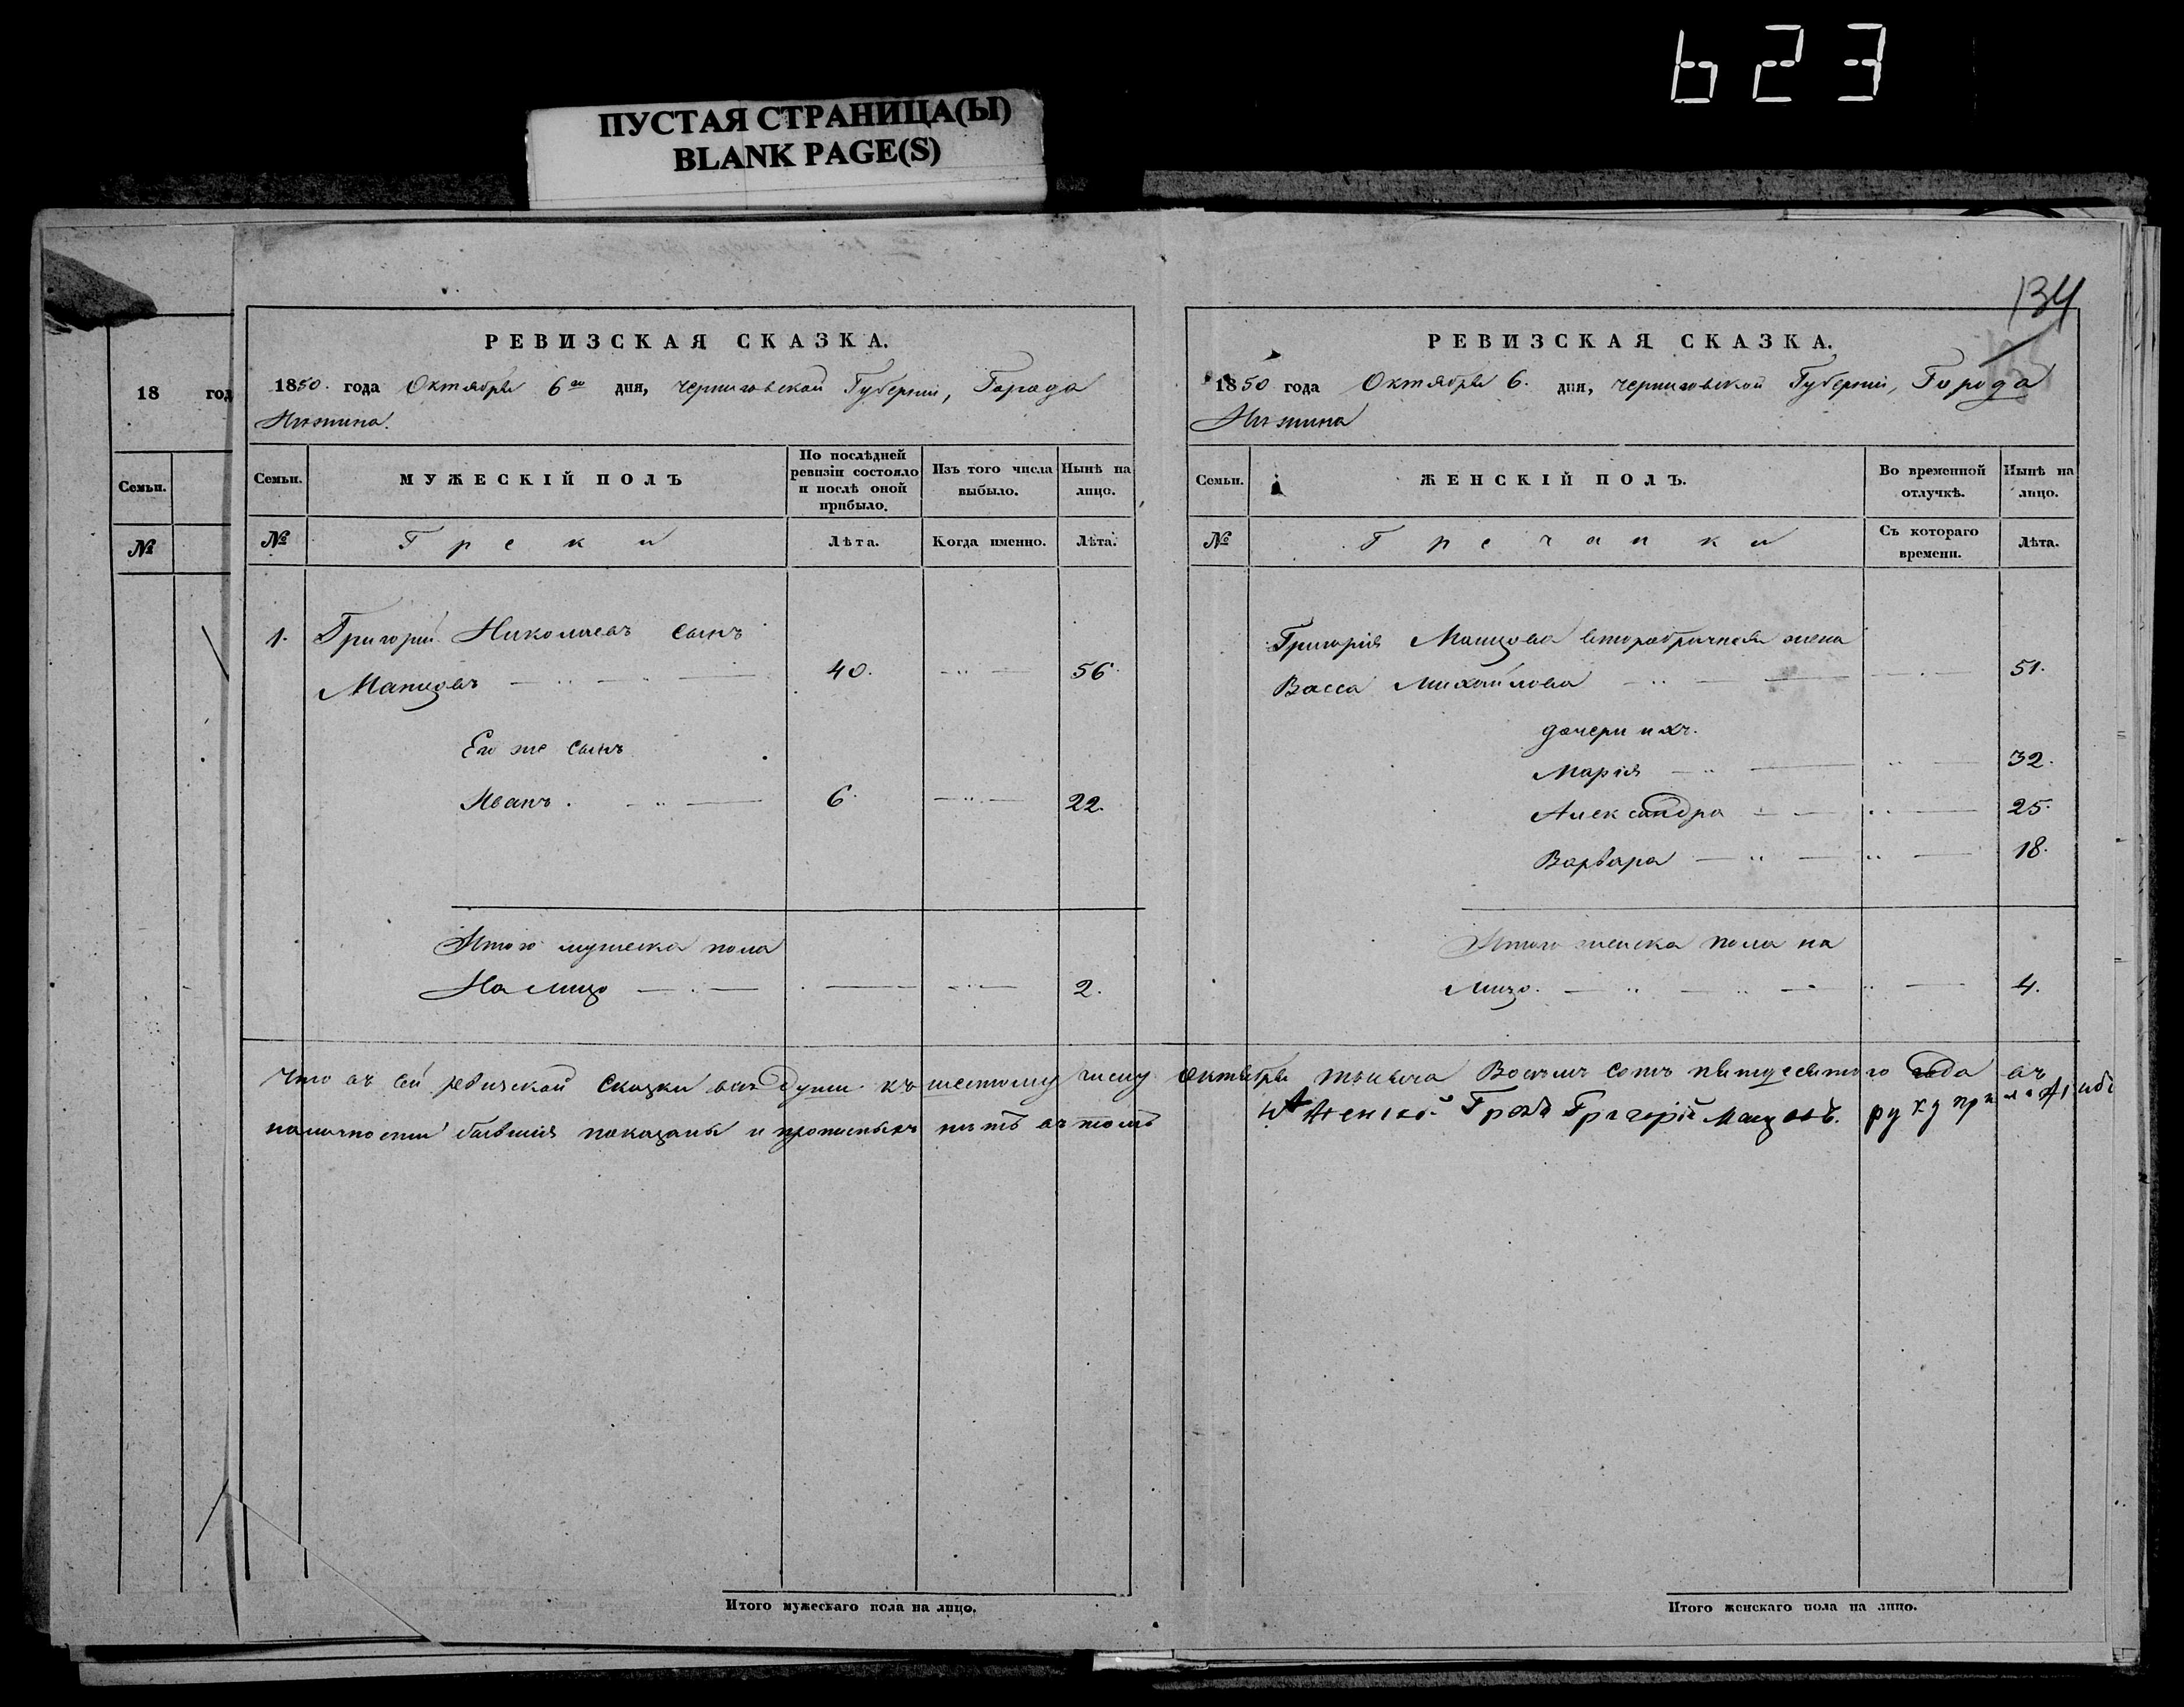 623
ПУСТАЯ СТРАНИЦА(Ы)
BLANK PAGE(S)
134
18 год
Семьи.
№
РЕВИЗСКАЯ СКАЗКА.
1850. года Октября 6го дня, Черниговской Губернии, Города
Нѣжина.
Семьи.
МУЖЕСКІЙ ПОЛЪ
По послѣдней ревизіи состояло и послѣ оной прибыло.
Изъ того числа выбыло.
Нынѣ на лицо.
№
Греки
Лѣта.
Когда именно.
Лѣта.
1. Григорий Николаевъ сынъ
Манцовъ 40. 56.
Его же сынъ
Иванъ. 6. 22.
Итого мужеска пола
На лицо 2.
РЕВИЗСКАЯ СКАЗКА.
1850 года Октября 6. дня, Черниговской Губерніи, Города
Нѣжина
Семьи.
ЖЕНСКІЙ ПОЛЪ.
Во временной отлучкѣ.
Нынѣ на лицо.
№
Гречанки
Съ котораго времени.
Лѣта.
Григорія Манцова второбрачная жена
Васса Михайлова 51.
дочери ихъ.
Марія 32.
Александра 25.
Варвара 18.
Итого женска пола на
лицо. 4.
Что въ сей ревизской сказки всѣ души къ шестому числу октября тысяча Восемь сотъ пятдесятого года въ
наличности бывшия показаны и прописныхъ нѣтъ въ томъ
Грекъ Григорій Манцовъ. руку
Итого мужескаго пола на лицо.
Итого женскаго пола на лицо.